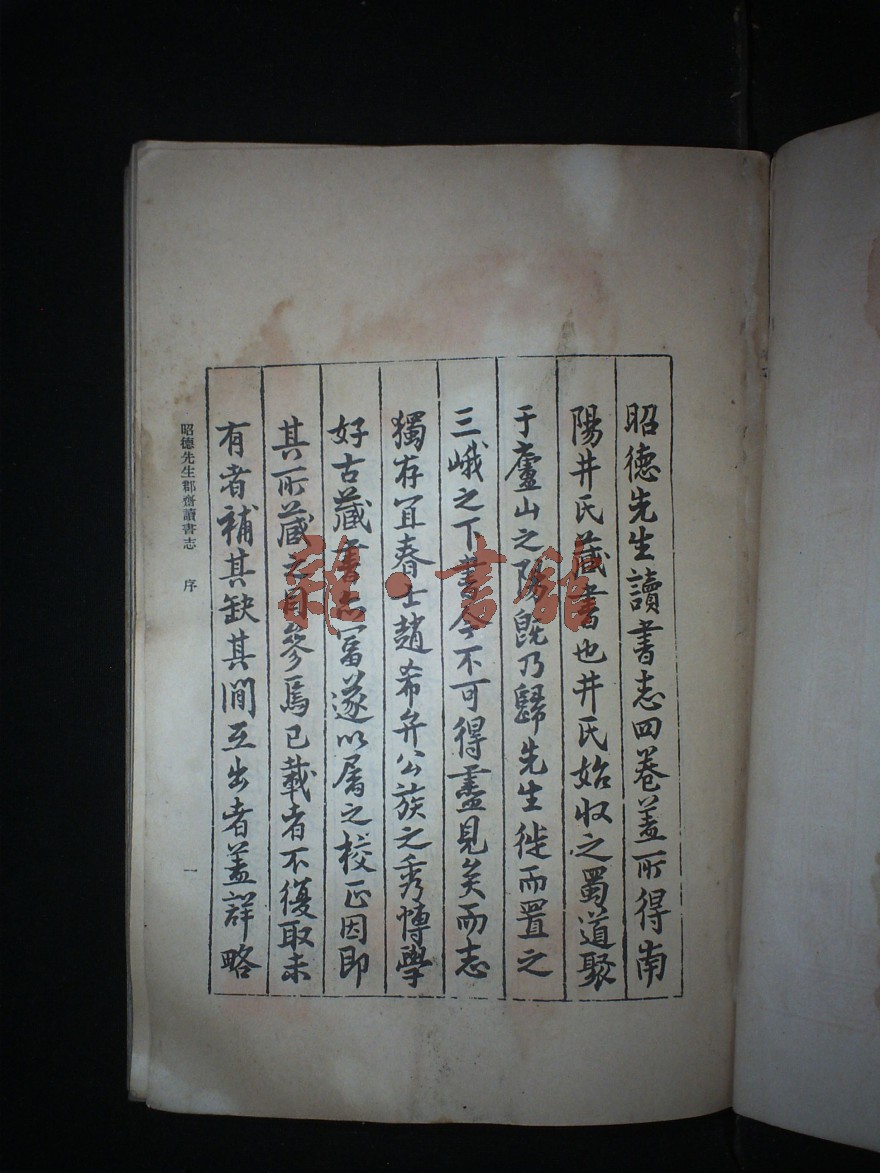 昭德先生讀書志四卷盖所得南
陽井氏藏書也井氏始收之蜀道聚
于廬山之陽旣乃歸先生徙而置之
三峨之下書今不可得盡見矣而志
獨存宜春士趙希弁公族之秀博學
好古藏書亦富遂以屬之校正因即
其所藏之目參焉已載者不復取未
有者補其缺其間互出者盖詳略
昭德先生郡齋讀書志 序 一
雜·書館